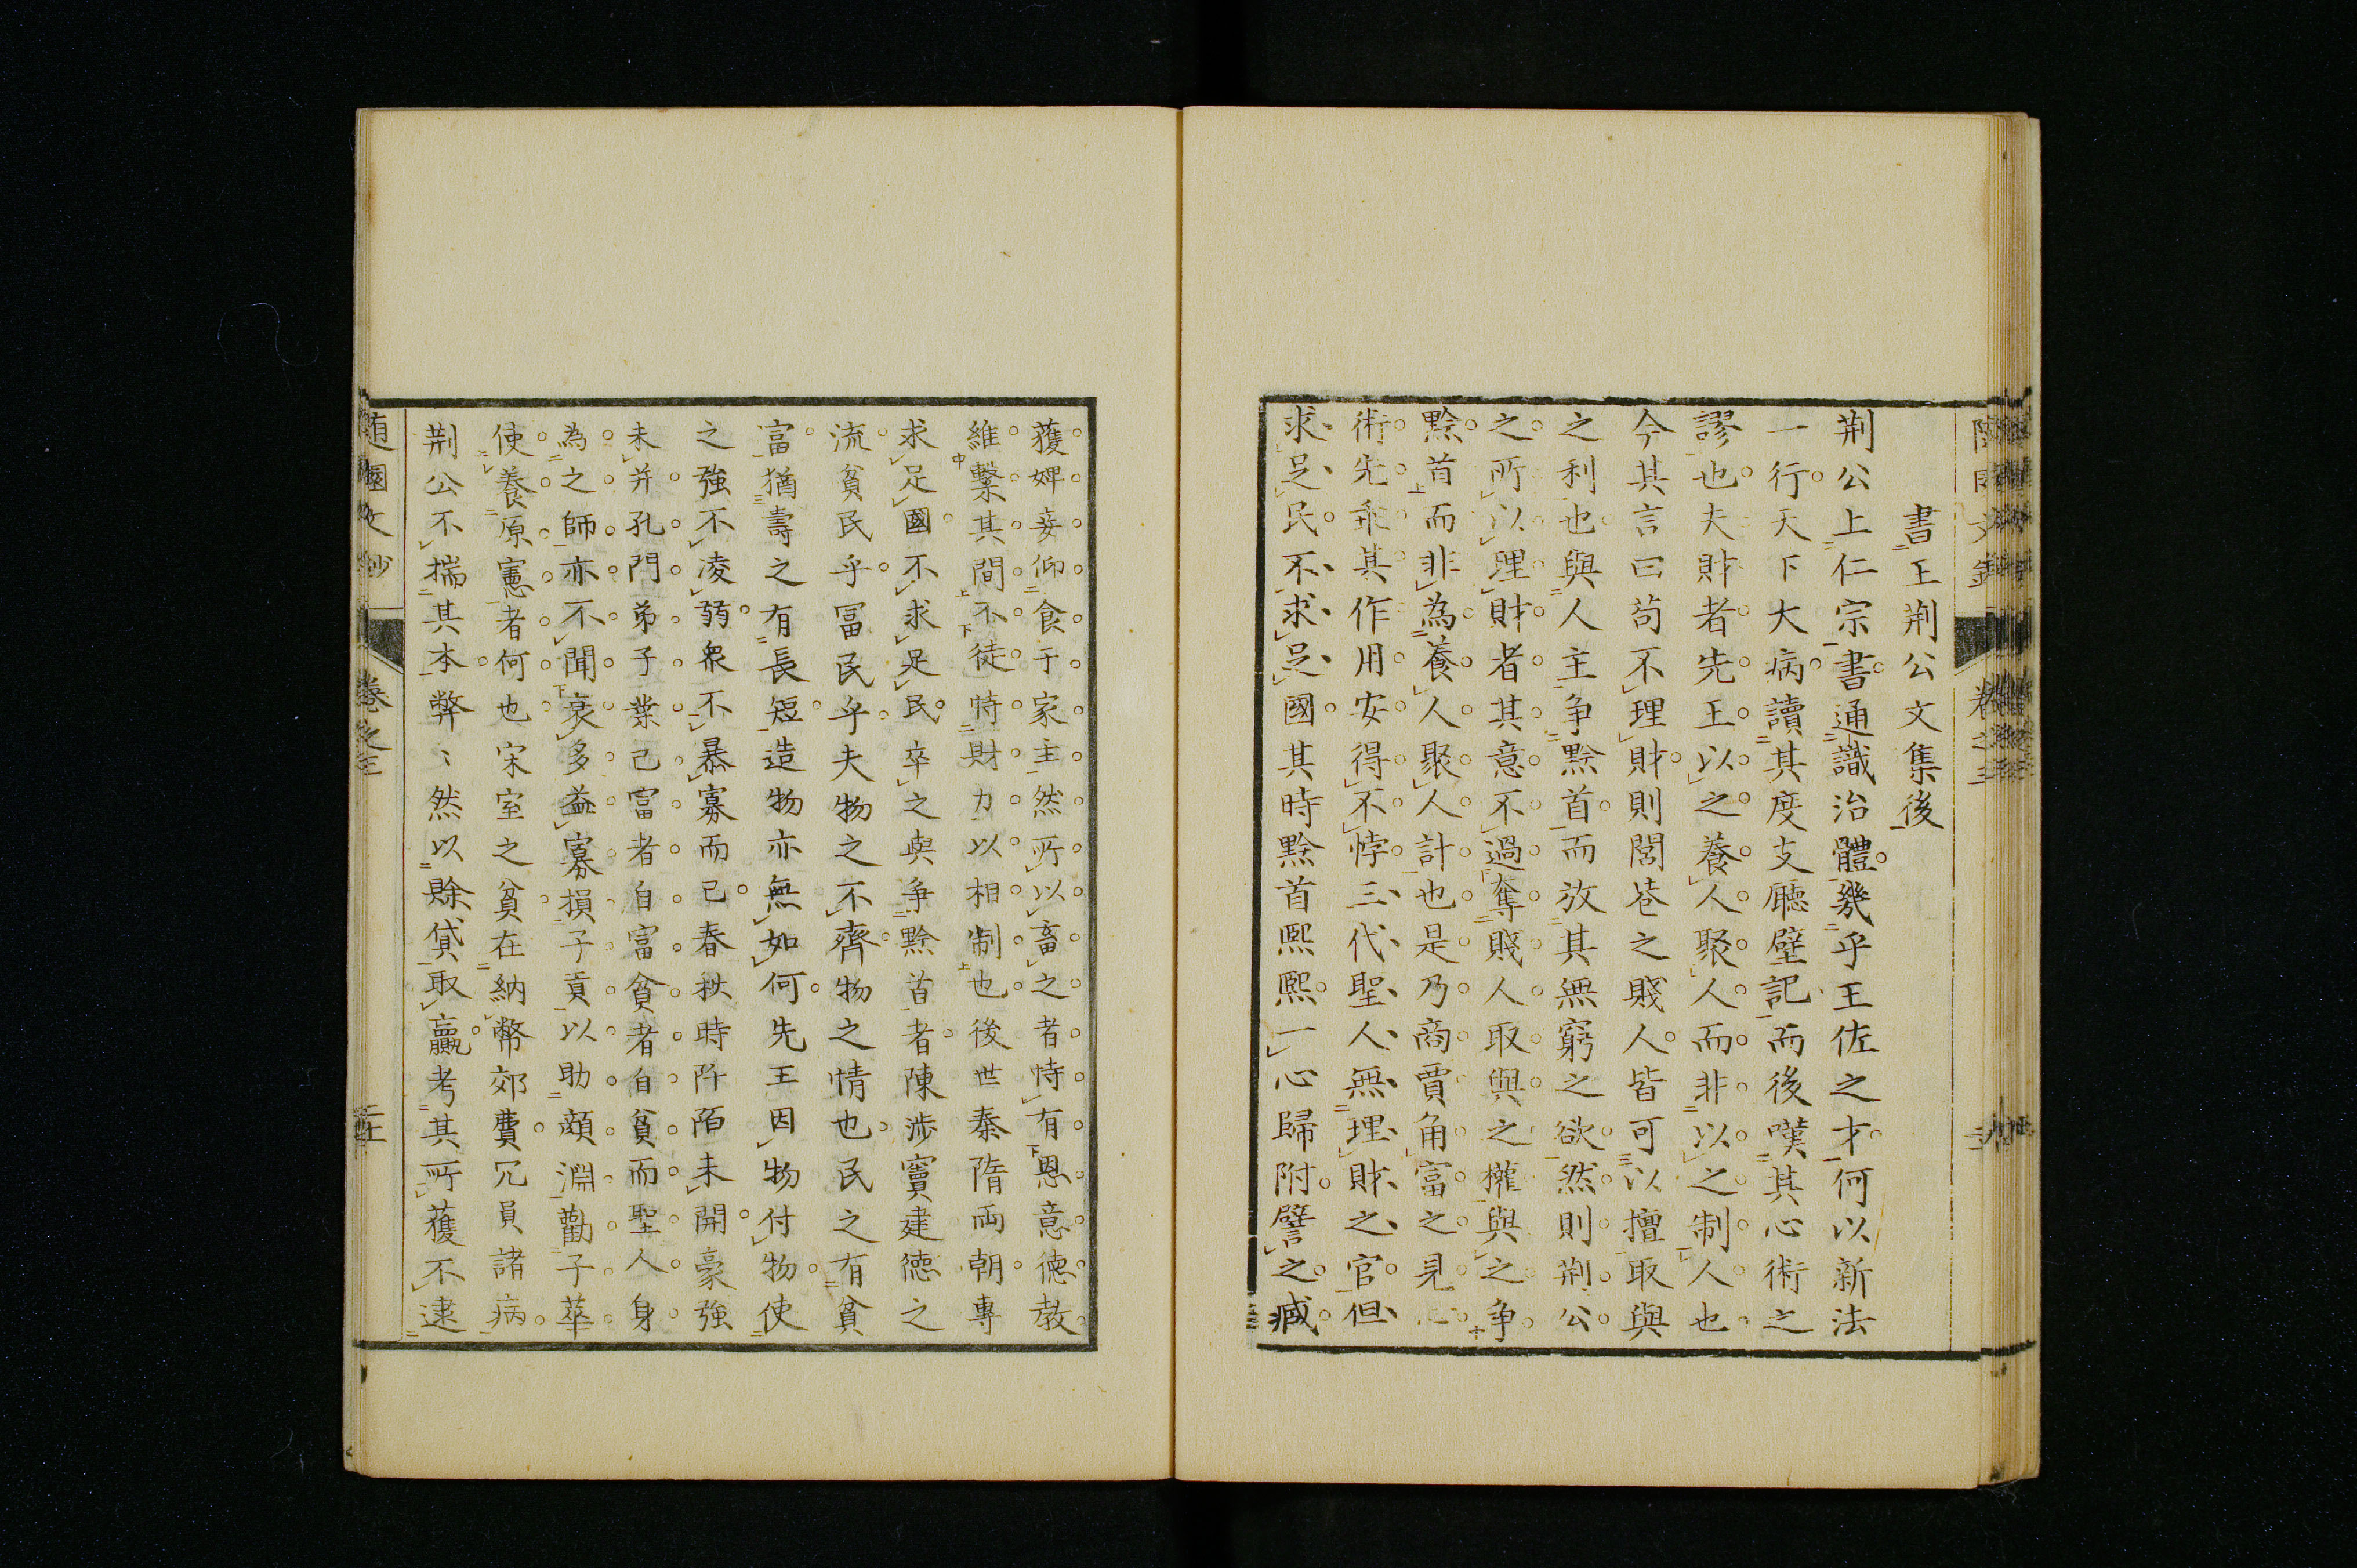 書王荆公文集後
荆公上仁宗書通識治體幾乎王佐之才何以新法
一行天下大病讀其度支廳壁記而後嘆其心術之
謬也夫財者先王以之養人聚人而非以之制人也
今其言曰苟不理財則閭巷之賤人皆可以擅取與
之利也與人主争黔首而放其無窮之欲然則荆公
之所以理財者其意不過奪賤人取與之權與之争
黔首而非為養人聚人計也是乃商賈角富之見
術先乖其作用安得不悖三代聖人無理財之官但
求足民不求足國其時黔首熙熙一心歸附譬之臧
獲婢妾仰食于家主然所以畜之者恃有恩意德教
維繫其間不徒恃財力以相制也後世秦隋兩朝專
求足國不求足民卒之與争黔首者陳涉竇建德之
流貧民乎冨民乎夫物之不齊物之情也民之有貧
富猶壽之有長短造物亦無如何先王因物付物使
之強不凌弱衆不暴寡而已春秋時阡陌未開豪強
未并孔門弟子業已富者自富貧者自貧而聖人身
為之師亦不聞裒多益寡損子貢以助顔淵勸子華
使養原憲者何也宋室之貧在納幣郊費冗員諸病
荆公不揣其本弊〻然以賖貸取贏考其所獲不逮
随園文鈔
卷之三